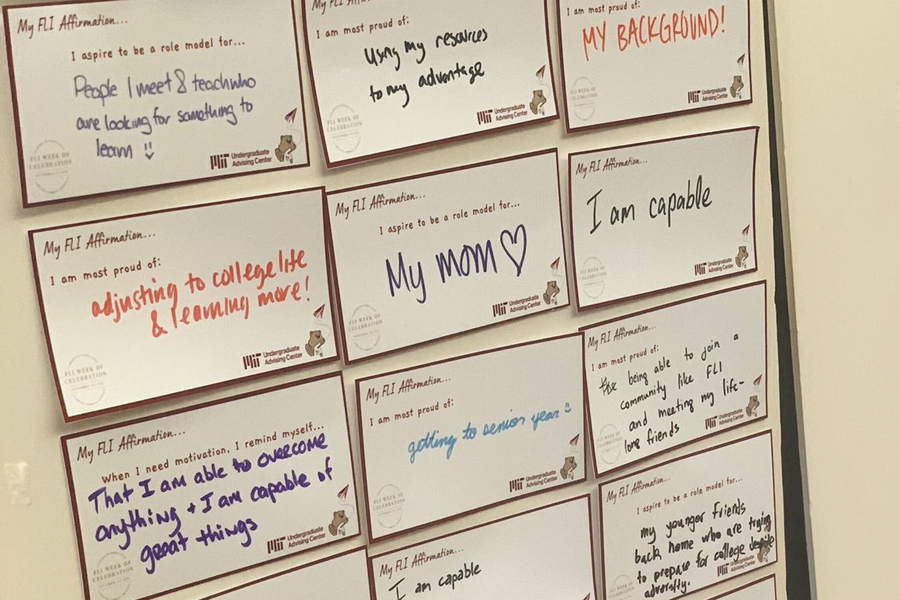 My FLI Affirmation...
I aspire to be a role model for...
People I meet & teach who
are looking for something to
learn
FLI WEEK OF
CELEBRATION
MIT Undergraduate
Advising Center
I am most proud of:
Using my resources
to my advantage
FLI WEEK OF
CELEBRATION
MIT Undergraduate
Advising Center
I am most proud of:
MY BACKGROUND!
MIT Undergraduate
Advising Center
My FLI Affirmation...
I am most proud of:
adjusting to college life
& learning more!
FLI WEEK OF
CELEBRATION
MIT Undergraduate
Advising Center
My FLI Affirmation...
I aspire to be a role model for...
My mom
FLI WEEK OF
CELEBRATION
MIT Undergraduate
Advising Center
My FLI Affirmation...
I am capable
MIT Undergraduate
Advising Center
My FLI Affirmation...
When I need motivation, I remind myself...
That I am able to overcome
anything + I am capable of
great things
FLI WEEK OF
CELEBRATION
MIT Undergraduate
Advising Center
My FLI Affirmation...
I am most proud of:
getting to senior year
FLI WEEK OF
CELEBRATION
MIT Undergraduate
Advising Center
My FLI Affirmation...
I am most proud of:
being able to join a
community like FLI
and meeting my life-
long friends
MIT Undergraduate
Advising Center
My FLI Affirmation...
I am capable
My FLI Affirmation...
I aspire to be a role model for...
my younger friends
back home who are trying
to prepare for college despite
adversity.